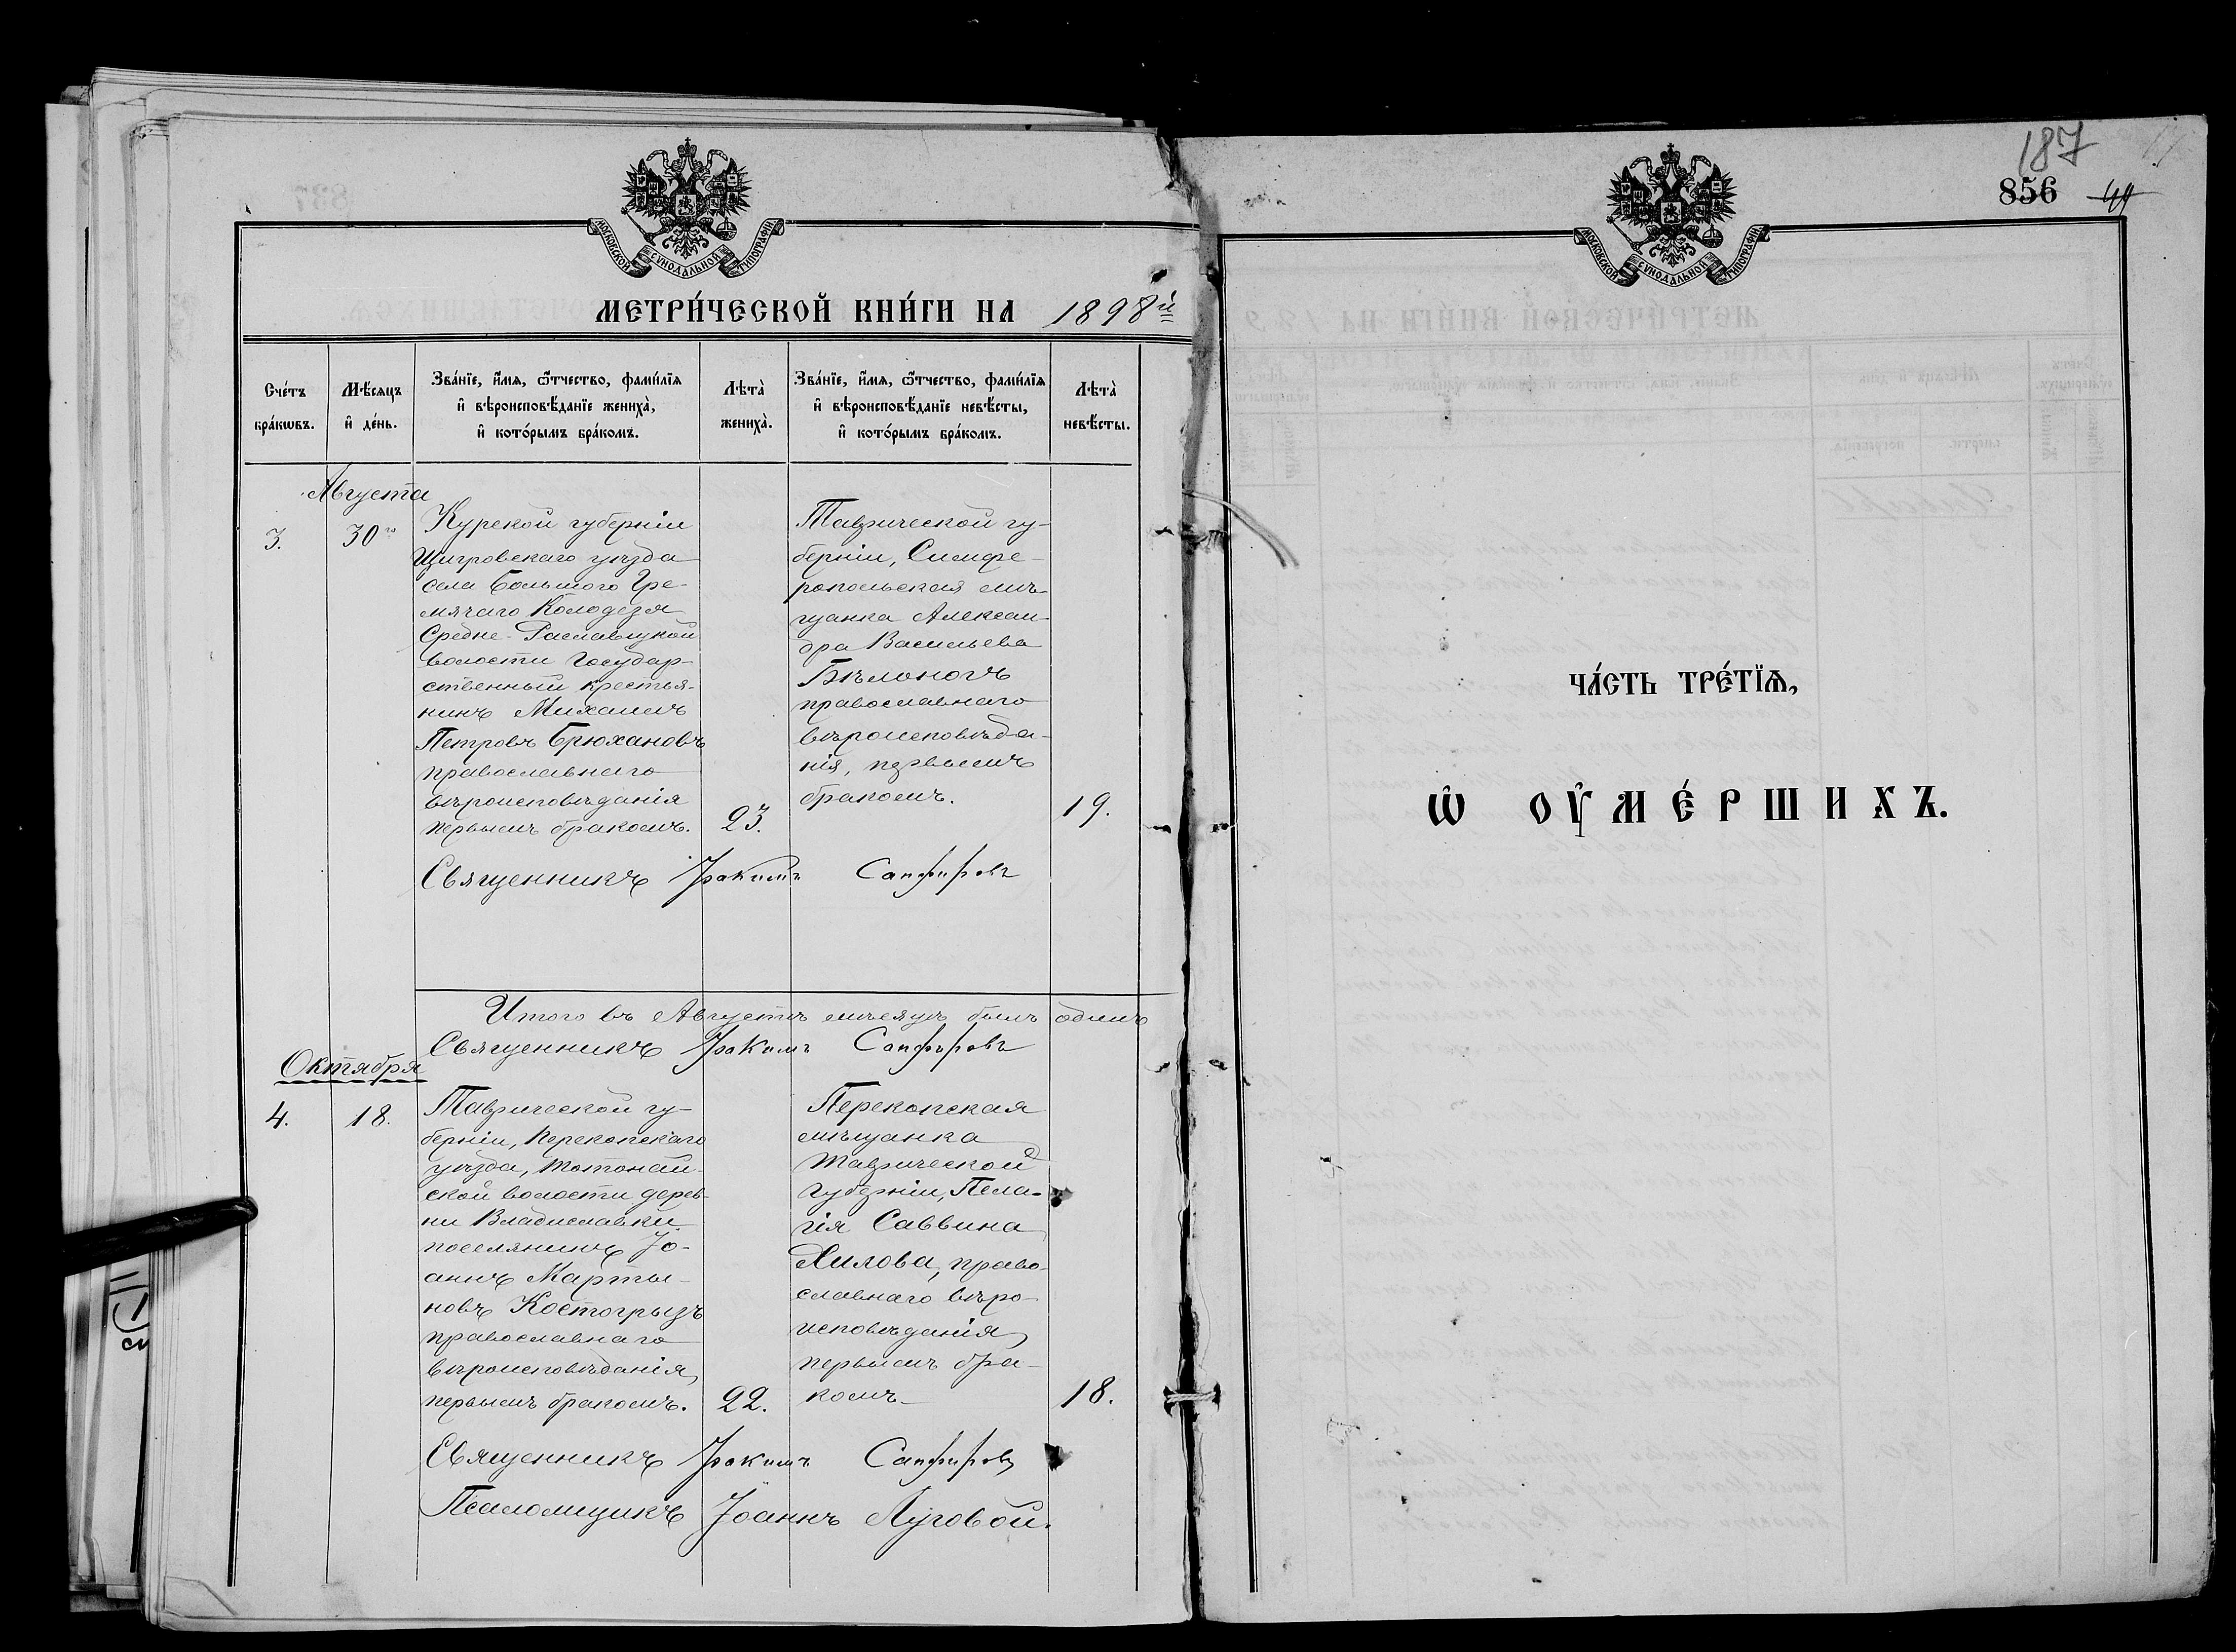 МОСКОВСКОЙ СѴНОДАЛЬНОЙ ТИПОГРАФІИ
МЕТРИ́ЧЕСКОЙ КНИ́ГИ НА 1898й
Сче́тъ бра́кѡвъ.
Мѣ́сяцъ и҆ де́нь.
Зва́нїе, и҆́мѧ, ѻ҆́тчество, фами́лїѧ
и҆ вѣроисповѣ́данїе жениха̀,
и҆ кото́рымъ бра́комъ.
Лѣта̀ жениха̀.
Зва́нїе, и҆́мѧ, ѻ҆́тчество, фами́лїѧ
и҆ вѣроисповѣ́данїе невѣ́сты,
и҆ кото́рымъ бра́комъ.
Лѣта̀ невѣ́сты.
Августа
3.
30го
Курской губерніи
Щигровскаго уѣзда
села Большого Гре-
мячаго Колодезя
Средне-Расховецкой
волости Государ-
ственный крестья-
нинъ Михаилъ
Петровъ Брюхановъ
православнаго
вѣроисповѣданія
первымъ бракомъ.
23.
Таврической гу-
берніи, Симфе-
ропольская мѣ-
щанка Алексан-
дра Васильева
Бѣлоногъ
православнаго
вѣроисповѣда-
нія, первымъ
бракомъ.
19.
Священникъ Іоакимъ Сапфировъ
Итого въ Августѣ мѣсяцѣ былъ одинъ
Священникъ Іоакимъ Сапфировъ
Октября
4.
18.
Таврической гу-
берніи, Перекопскаго
уѣзда, Тотонай-
ской волости дерев-
ни Владиславки
поселянинъ Іо-
аннъ Марты-
новъ Костогрызъ
православнаго
вѣроисповѣданія,
первымъ бракомъ.
22.
Перекопская
мѣщанка
Таврической
губерніи, Пела-
гія Саввина
Хилова, право-
славнаго вѣро-
исповѣданія,
первымъ бра-
комъ
18.
Священникъ Іоакимъ Сапфировъ
Псаломщикъ Іоаннъ Луговой.
187
856 44
МОСКОВСКОЙ СѴНОДАЛЬНОЙ ТИПОГРАФІИ
ЧА́СТЬ ТРЕ́ТЇѦ,
Ѡ҆ ОУ҆МЕ́РШИХЪ.